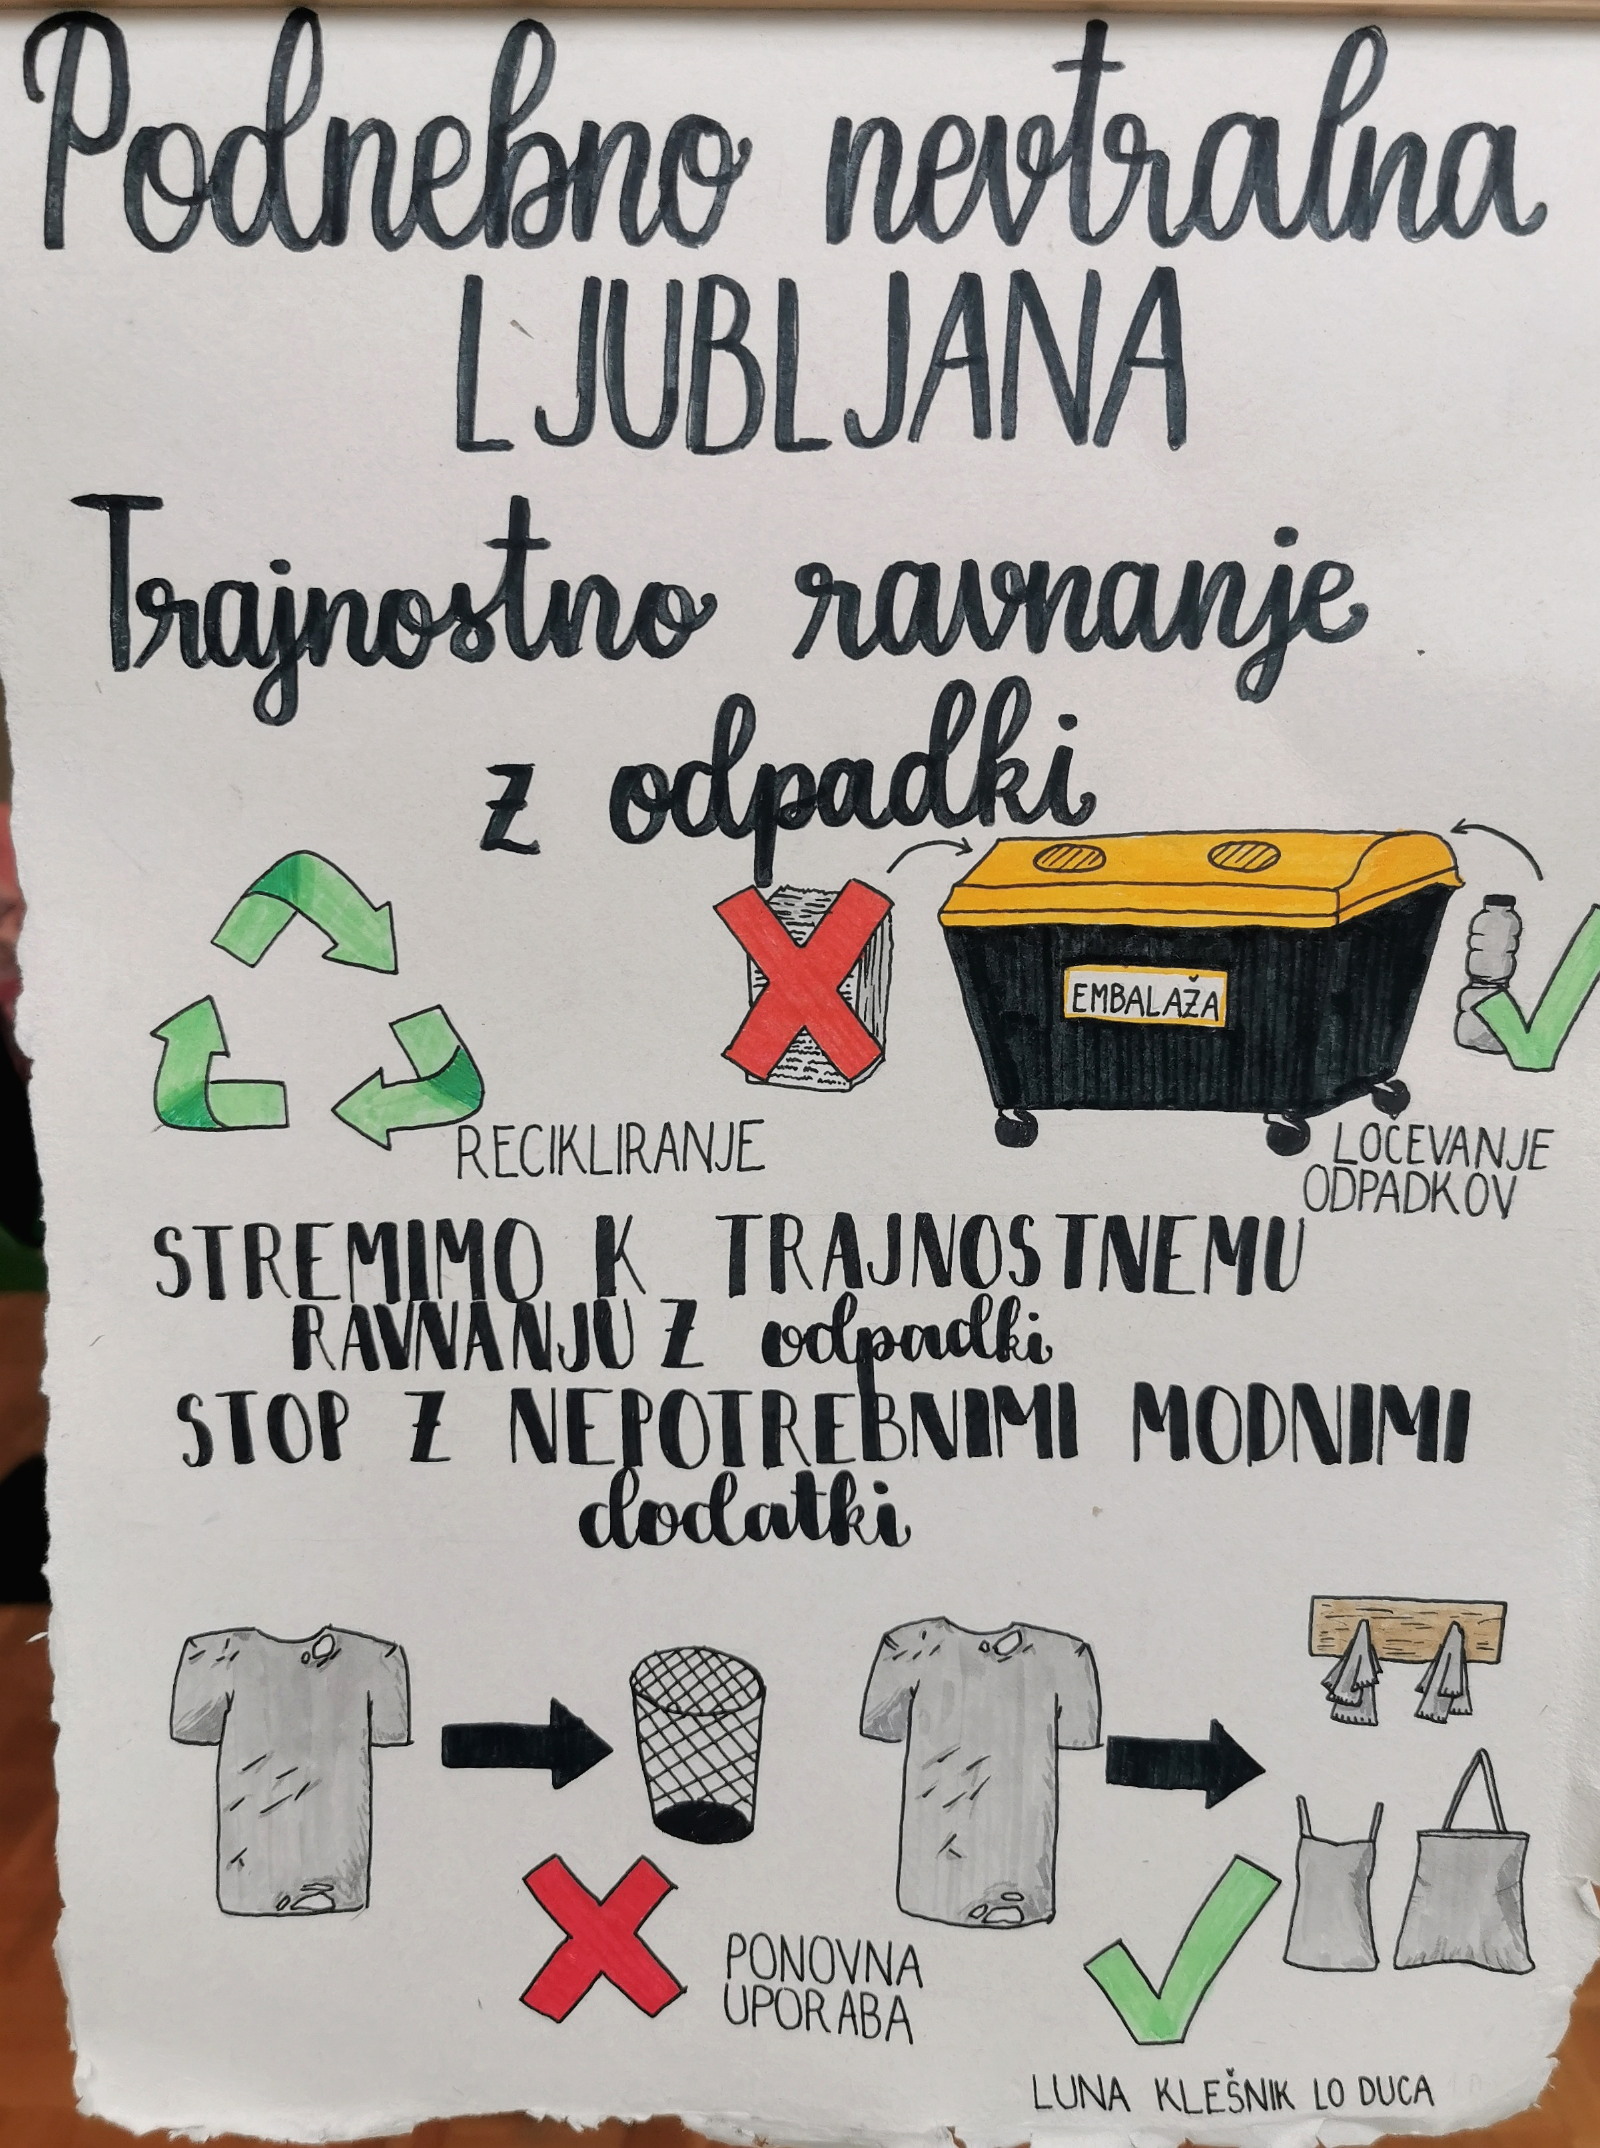 Podnebno nevtralna
LJUBLJANA
Trajnostno ravnanje
z odpadki
EMBALAŽA
RECIKLIRANJE
LOČEVANJE
ODPADKOV
STREMIMO K TRAJNOSTNEMU
RAVNANJU Z odpadki
STOP Z NEPOTREBNIMI MODNIMI
dodatki
PONOVNA
UPORABA
LUNA KLEŠNIK LO DUCA